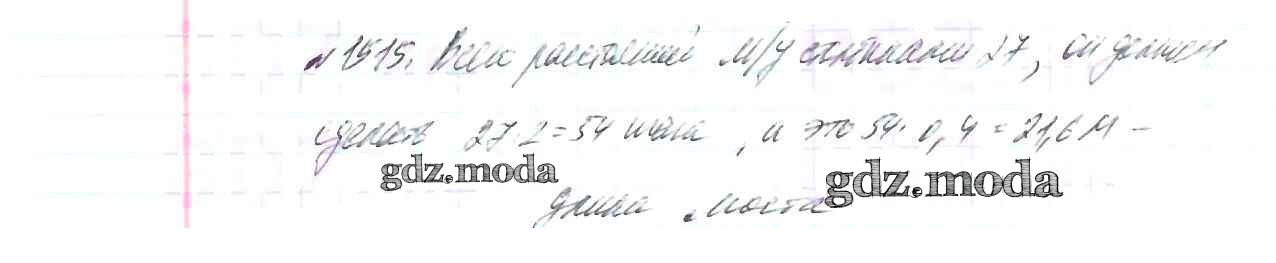 №1515. Всего расстояний м/у столбиками 27, он должен
сделать 27·2=54 шага, а это 54·0,4=21,6 м –
gdz.moda
длина моста
gdz.moda